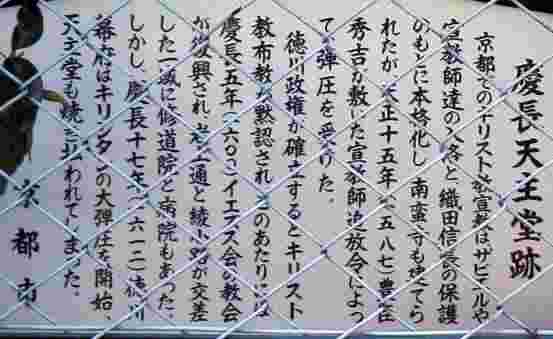 慶長天主堂跡
京都でのキリスト教宣教はザビエルや
宣教師達の入洛と織田信長の保護
のもとに本格化し、南蛮寺も建てら
れたが、天正十五年(一五八七)豊臣
秀吉が敷いた宣教師追放令によっ
て弾圧を受けた。
徳川政権が確立するとキリスト
教布教が黙認され、このあたりには
慶長五年(一六〇〇)イエズス会の教会
が復興され、岩上通と綾小路が交差
した一域に修道院と病院もあった。
しかし、慶長十七年(一六一二)徳川
幕府はキリシタンの大弾圧を開始、
天主堂も焼き払われてしまった。
京都市